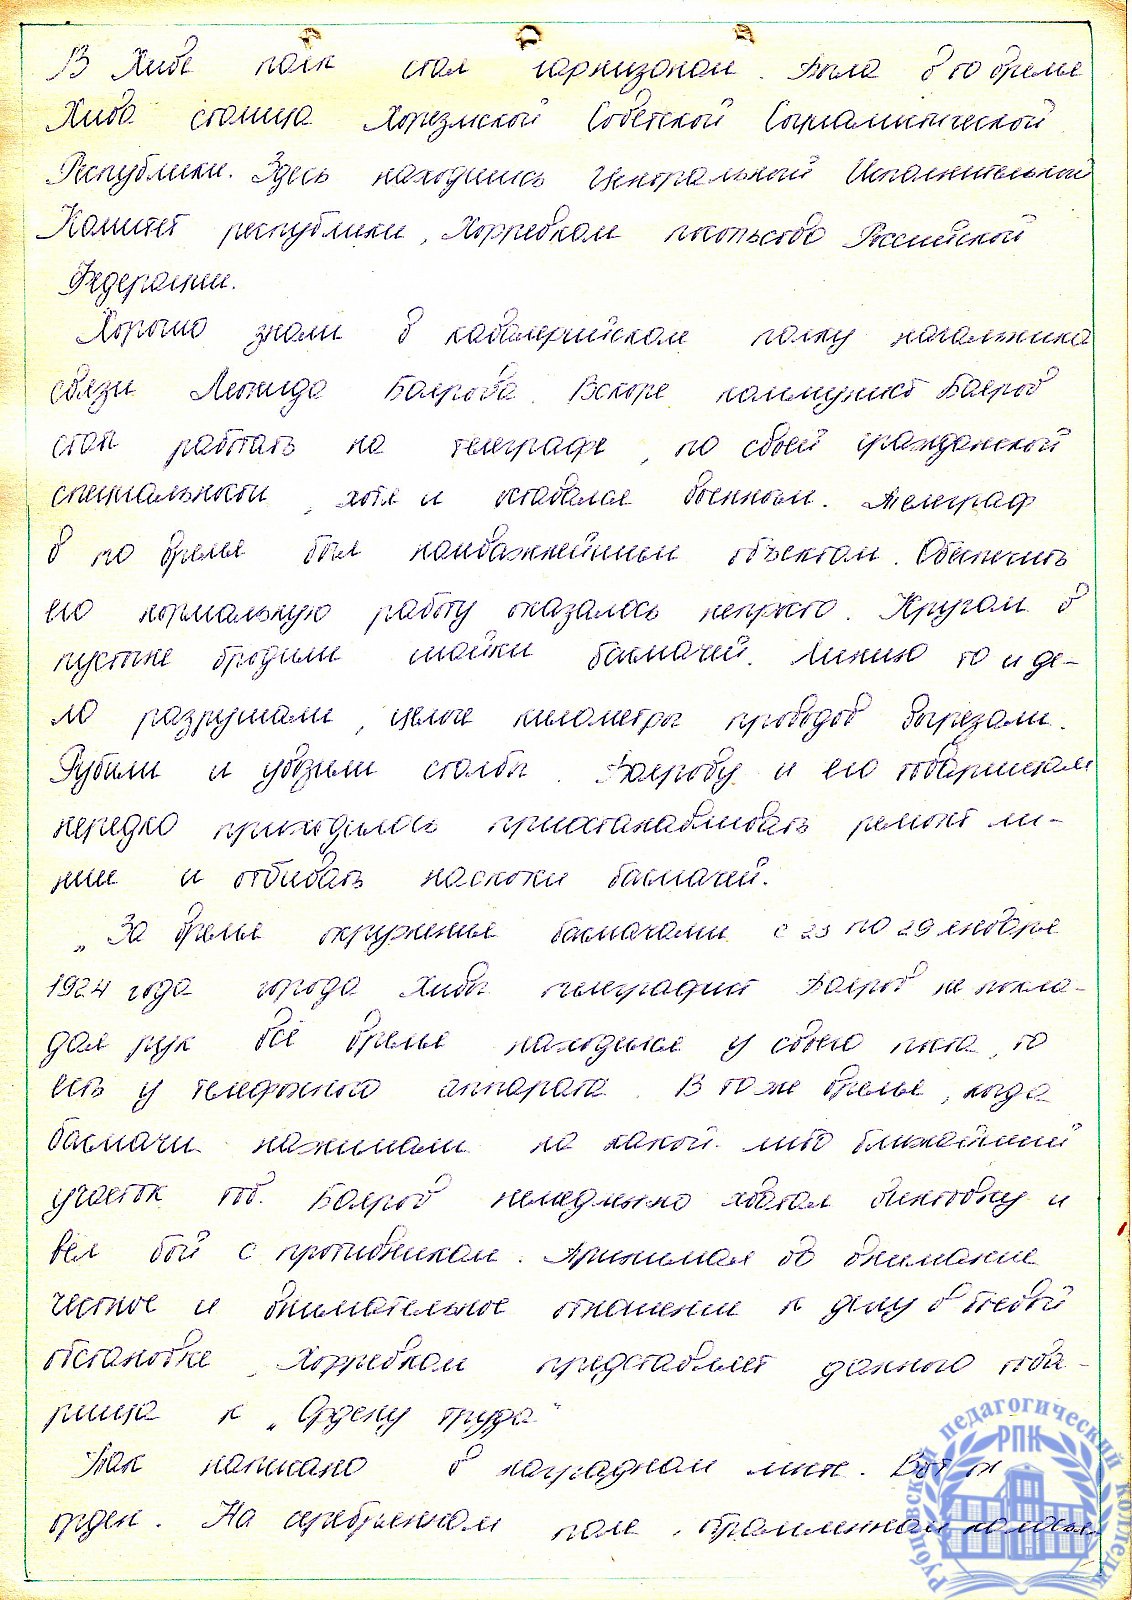 В Хиве полк стал гарнизоном. Была в то время
Хива столица Хорезмской Советской Социалистической
Республики. Здесь находились Центральный Исполнительный
Комитет республики, Хорревком посольство Российской
Федерации.
Хорошо знали в кавалерийском полку начальника
связи Леонида Боярова. Вскоре коммунист Бояров
стал работать на телеграфе, по своей гражданской
специальности, хотя и оставался военным. Телеграф
в то время был наиважнейшим объектом. Обеспечить
его нормальную работу оказалось непросто. Кругом в
пустыне бродили шайки басмачей. Линию то и де-
ло разрушали, целые километры проводов вырезали.
Рубили и увозили столбы. Боярову и его товарищам
нередко приходилось приостанавливать ремонт ли-
нии и отбивать наскоки басмачей.
„За время окружения басмачами с 23 по 29 января
1924 года города Хивы телеграфист Бояров не покла-
дая рук всё время находился у своего поста, то
есть у телефонного аппарата. В то же время, когда
басмачи нажимали на какой либо ближайший
участок тов. Бояров немедленно хватал винтовку и
вёл бой с противником. Принимая во внимание
честное и внимательное отношение к делу в боевой
обстановке, Хорревком представляет данного това-
рища к „Ордену труда“
Так написано в наградном листе. Вот он
орден. На серебрянном поле, обрамленном колосья
Рубцовский педагогический колледж
РПК